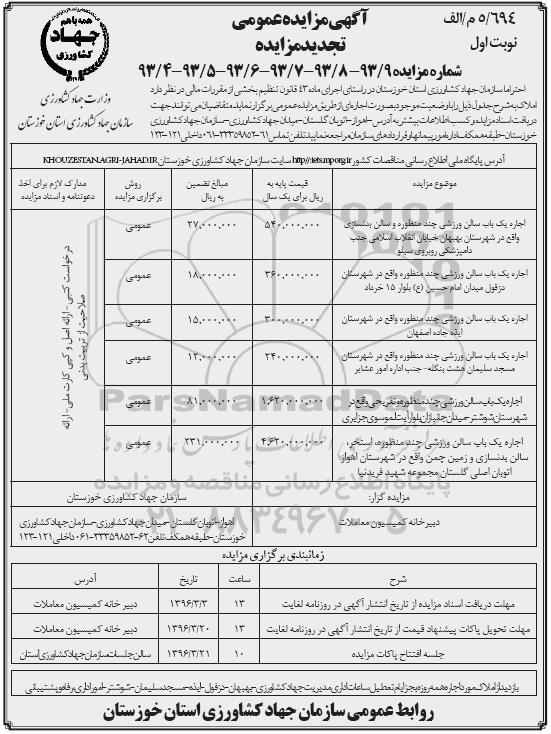 ۵/۶۹۴ م/الف
نوبت اول
آگهی مزایده عمومی
تجدید مزایده
همه با هم
جهاد
کشاورزی
وزارت جهاد کشاورزی
سازمان جهاد کشاورزی استان خوزستان
شماره مزایده ۹۳/۹-۹۳/۸-۹۳/۷-۹۳/۶-۹۳/۵-۹۳/۴
احتراما سازمان جهاد کشاورزی استان خوزستان در راستای اجرای ماده ۴۳ قانون تنظیم بخشی از مقررات مالی در نظر دارد
املاک به شرح جدول ذیل را با وضعیت موجود بصورت اجاره ای از طریق مزایده عمومی برگزار نماید متقاضیان می توانند جهت
دریافت اسناد مزایده و کسب اطلاعات بیشتر به آدرس -اهواز-اتوبان گلستان-میدان جهاد کشاورزی-سازمان جهاد کشاورزی
خوزستان-طبقه همکف اداره امور پیمانها و قراردادهای سازمان مراجعه نمایید تلفن تماس ۶۱-۳۳۳۵۹۸۵۲-۰۶۱ داخلی ۱۲۱-۱۲۳
آدرس پایگاه ملی اطلاع رسانی مناقصات کشور http://iets.mporg.ir سایت سازمان جهاد کشاورزی خوزستان KHOUZESTAN.AGRI-JAHAD.IR
موضوع مزایده
قیمت پایه به ریال برای یک سال
مبالغ تضمین به ریال
روش برگزاری مزایده
مدارک لازم برای اخذ دعوتنامه و اسناد مزایده
اجاره یک باب سالن ورزشی چند منظوره و سالن بدنسازی
واقع در شهرستان بهبهان خیابان انقلاب اسلامی جنب
دامپزشکی روبروی سیلو
۵۴۰,۰۰۰,۰۰۰
۲۷,۰۰۰,۰۰۰
عمومی
اجاره یک باب سالن ورزشی چند منظوره واقع در شهرستان
دزفول میدان امام حسین (ع) بلوار ۱۵ خرداد
۳۶۰,۰۰۰,۰۰۰
۱۸,۰۰۰,۰۰۰
عمومی
اجاره یک باب سالن ورزشی چند منظوره واقع در شهرستان
ایذه جاده اصفهان
۳۰۰,۰۰۰,۰۰۰
۱۵,۰۰۰,۰۰۰
عمومی
اجاره یک باب سالن ورزشی چند منظوره واقع در شهرستان
مسجد سلیمان هشت بنگله- جنب اداره امور عشایر
۲۴۰,۰۰۰,۰۰۰
۱۲,۰۰۰,۰۰۰
عمومی
اجاره یک باب سالن ورزشی چند منظوره و تفریحی واقع در
شهرستان شوشتر-میدان جانبازان بلوار آیت الموسوی جزایری
۱,۶۲۰,۰۰۰,۰۰۰
۸۱,۰۰۰,۰۰۰
عمومی
اجاره یک باب سالن ورزشی چند منظوره، استخر،
سالن بدنسازی و زمین چمن واقع در شهرستان اهواز
اتوبان اصلی گلستان مجموعه شهید فریدنیا
۴,۶۲۰,۰۰۰,۰۰۰
۲۳۱,۰۰۰,۰۰۰
عمومی
درخواست کتبی - ارائه اصل و کپی کارت ملی - ارائه
صلاحیت از تربیت بدنی
مزایده گزار:
سازمان جهاد کشاورزی خوزستان
دبیر خانه کمیسیون معاملات
اهواز-اتوبان گلستان-میدان جهاد کشاورزی-سازمان جهاد کشاورزی
خوزستان-طبقه همکف تلفن ۶۲-۳۳۳۵۹۸۵۲-۰۶۱ داخلی ۱۲۱-۱۲۳
زمانبندی برگزاری مزایده
شرح
ساعت
تاریخ
آدرس
مهلت دریافت اسناد مزایده از تاریخ انتشار آگهی در روزنامه لغایت
۱۳
۱۳۹۶/۳/۳
دبیر خانه کمیسیون معاملات
مهلت تحویل پاکات پیشنهاد قیمت از تاریخ انتشار آگهی در روزنامه لغایت
۱۳
۱۳۹۶/۳/۲۰
دبیر خانه کمیسیون معاملات
جلسه افتتاح پاکات مزایده
۱۰
۱۳۹۶/۳/۲۱
سالن جلسات سازمان جهاد کشاورزی استان
بازدید از املاک مورد اجاره همه روزه بجز ایام تعطیل ساعات اداری مدیریت جهاد کشاورزی-بهبهان-دزفول-ایذه-مسجد سلیمان-شوشتر-امور اداری رفاه و پشتیبانی
روابط عمومی سازمان جهاد کشاورزی استان خوزستان
ParsNamadData
پایگاه اطلاع رسانی مناقصه و مزایده
۰۲۱-۸۸۳۴۹۶۷۰-۵